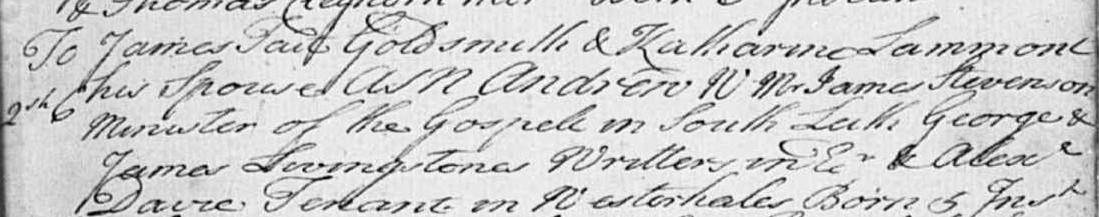 & Thomas
To James Tait Goldsmith & Katharine Lammont
his Spouse ASN Andrew W Mr James Stevenson
Minister of the Gospell in South Leith George &
James Livingstones Writters in Er & Alexr
Davie Tenant in Westerhales Born 5 Inst